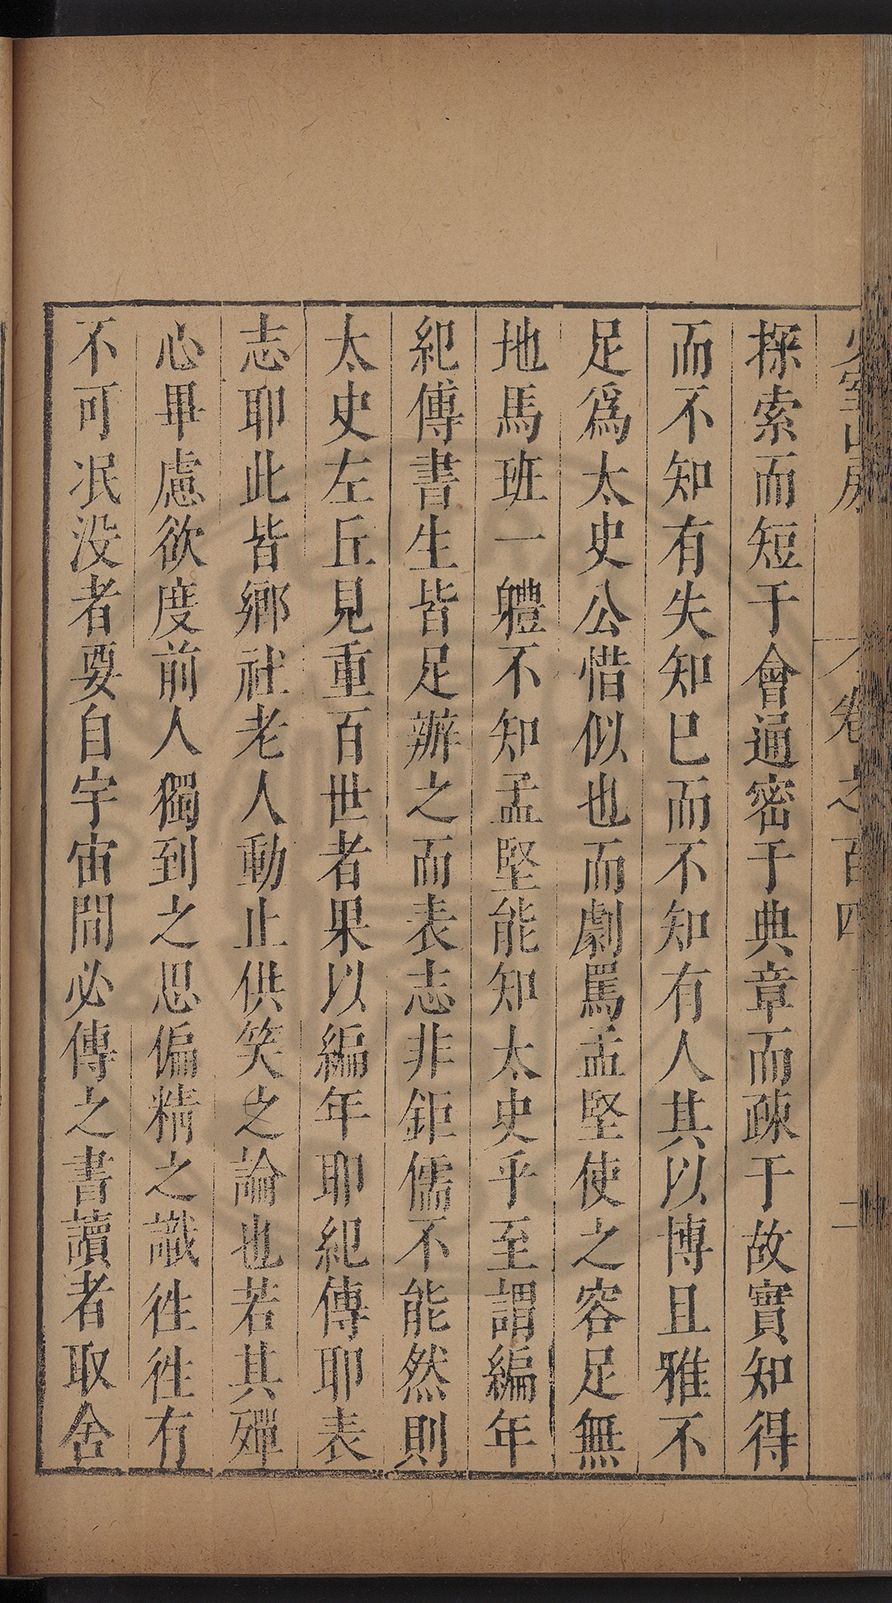 少室山房 卷之百四 二
探索而短于會通密于典章而疎于故實知得
而不知有失知已而不知有人其以博且雅不
足爲太史公惜似也而劇罵孟堅使之容足無
地馬班一軆不知孟堅能知太史乎至謂編年
紀傳書生皆足辦之而表志非鉅儒不能然則
太史左丘見重百世者果以編年耶紀傳耶表
志耶此皆鄉社老人動止供笑之論也若其殫
心畢慮欲度前人獨到之思偏精之識徃徃有
不可泯没者要自宇宙間必傳之書讀者取舍